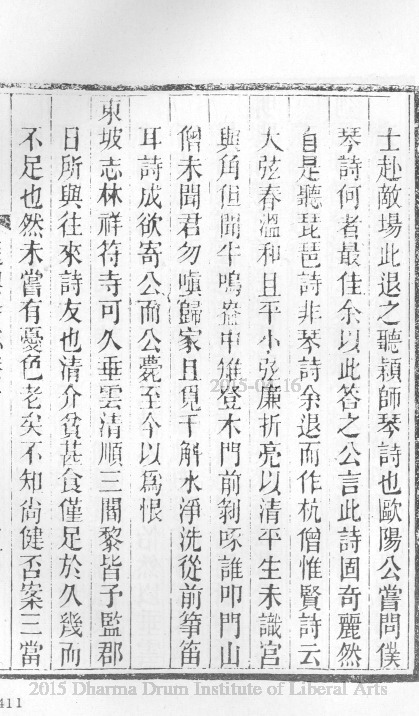 士赴敵場此退之聽穎師琴詩也歐陽公嘗問僕
琴詩何者最佳余以此答之公言此詩固奇麗然
自是聽琵琶詩非琴詩余退而作杭僧惟賢詩云
大弦春溫和且平小弦廉折亮以清平生未識宮
與角但聞牛鳴盎中雉登木門前剝啄誰叩門山
僧未聞君勿嗔歸家且覓千斛水淨洗從前箏笛
耳詩成欲寄公而公薨至今以爲恨
東坡志林祥符寺可久垂雲清順三闍黎皆予監郡
日所與往來詩友也清介貧甚食僅足於久幾而
不足也然未嘗有憂色老矣不知尚健否案三當
2015-04-16
411
2015 Dharma Drum Institute of Liberal Arts